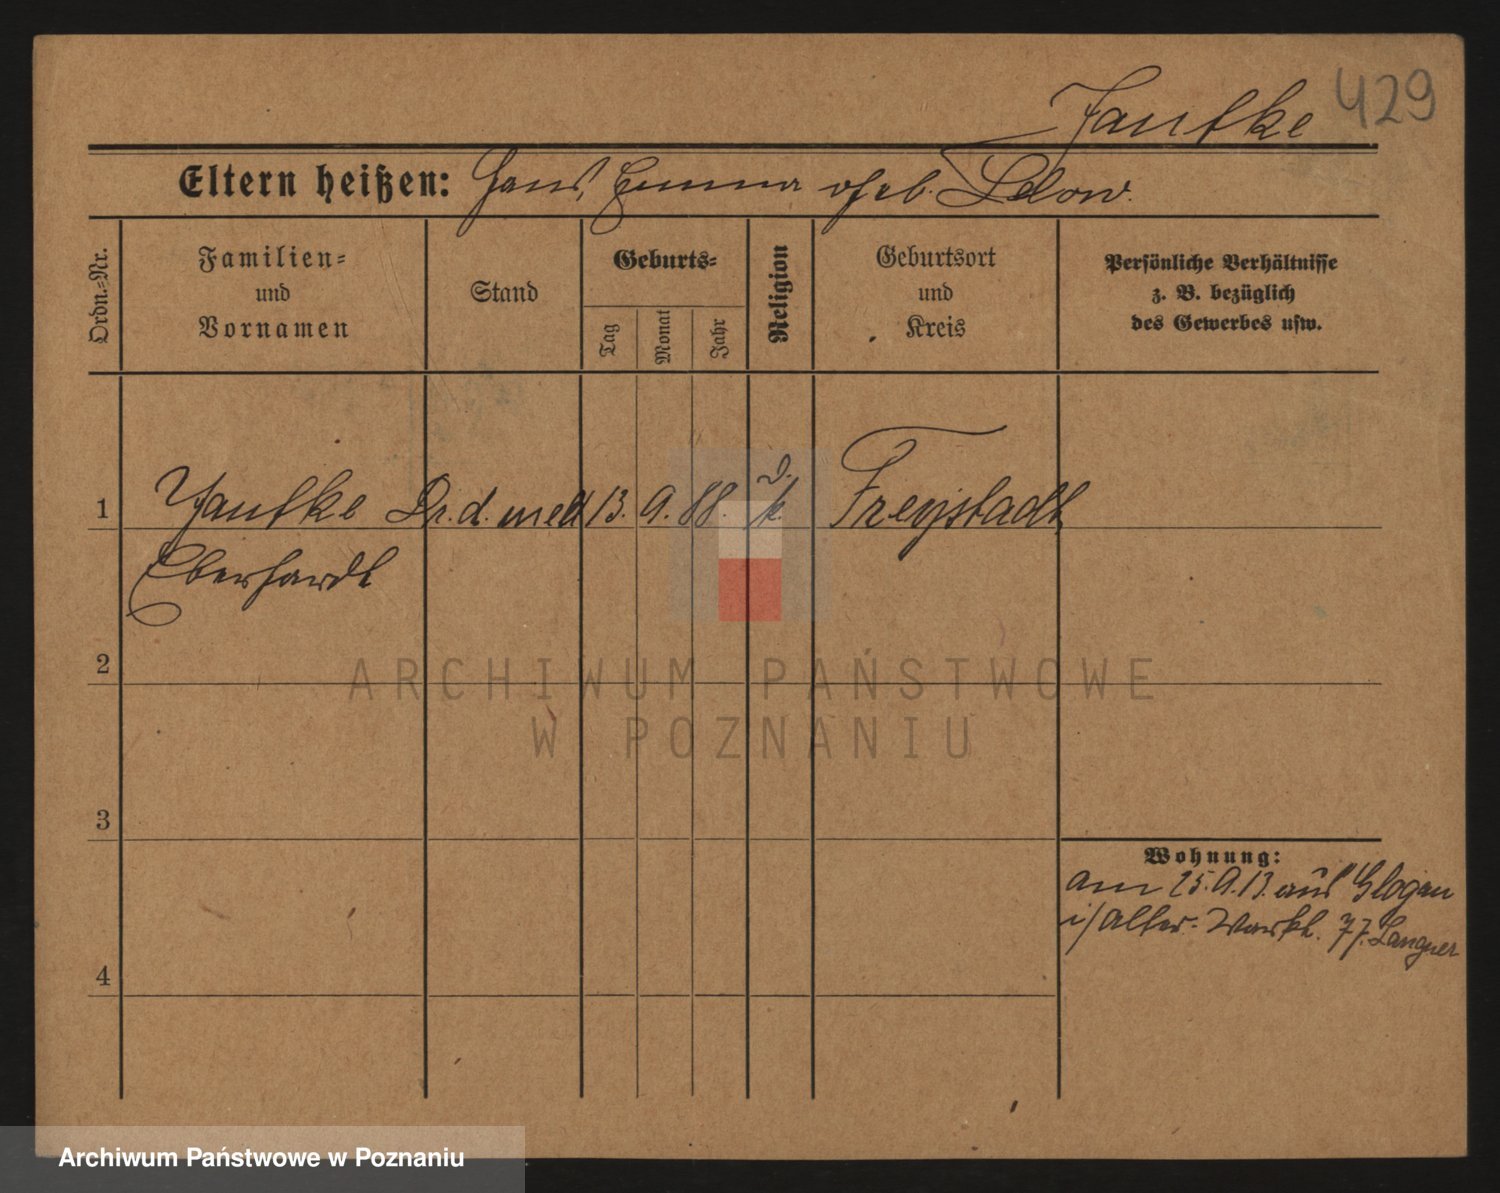 Jantke 429
Eltern heißen: Hans, Emma geb.
Ordn.-Nr.
Familien-
und
Vornamen
Stand
Geburts-
Tag
Monat
Jahr
Religion
Geburtsort
und
Kreis
Persönliche Verhältnisse
z. B. bezüglich
des Gewerbes usw.
1 Jantke Dr. d. med 13. 9. 88. k. Freystadt
Eberhardt
2
3
4
Wohnung:
am 25.9.13. aus Glogau
i/ Alter-Markt. 77. Langner
ARCHIWUM PAŃSTWOWE
W POZNANIU
Archiwum Państwowe w Poznaniu